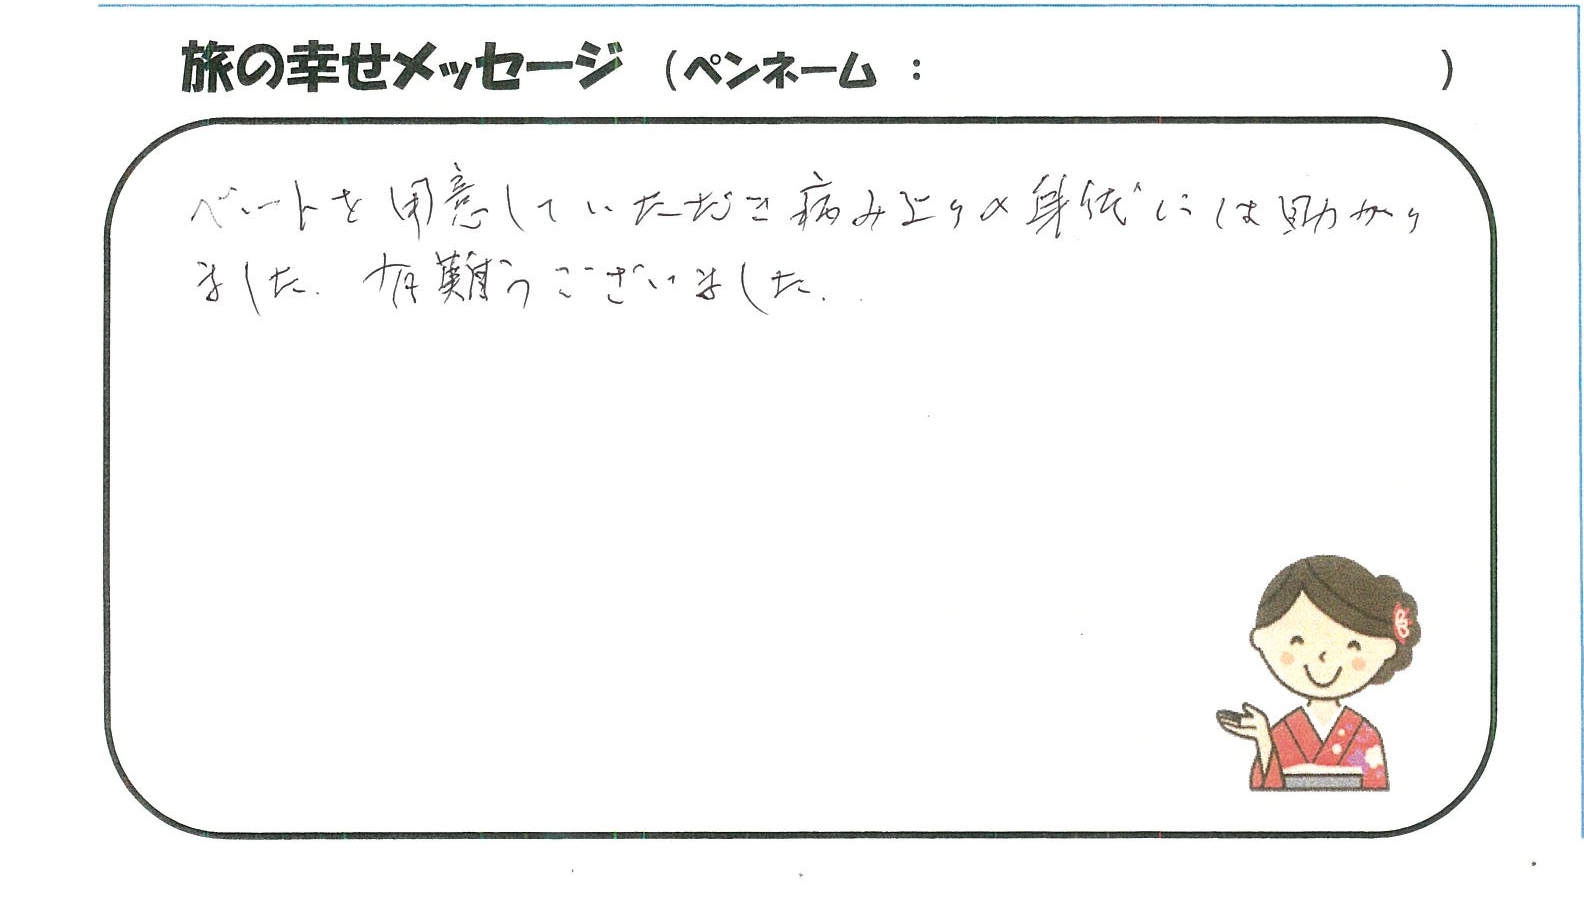 旅の幸せメッセージ (ペンネーム : )
ベットを用意していただき病み上りの身体には助かり
ました. 有難うございました.